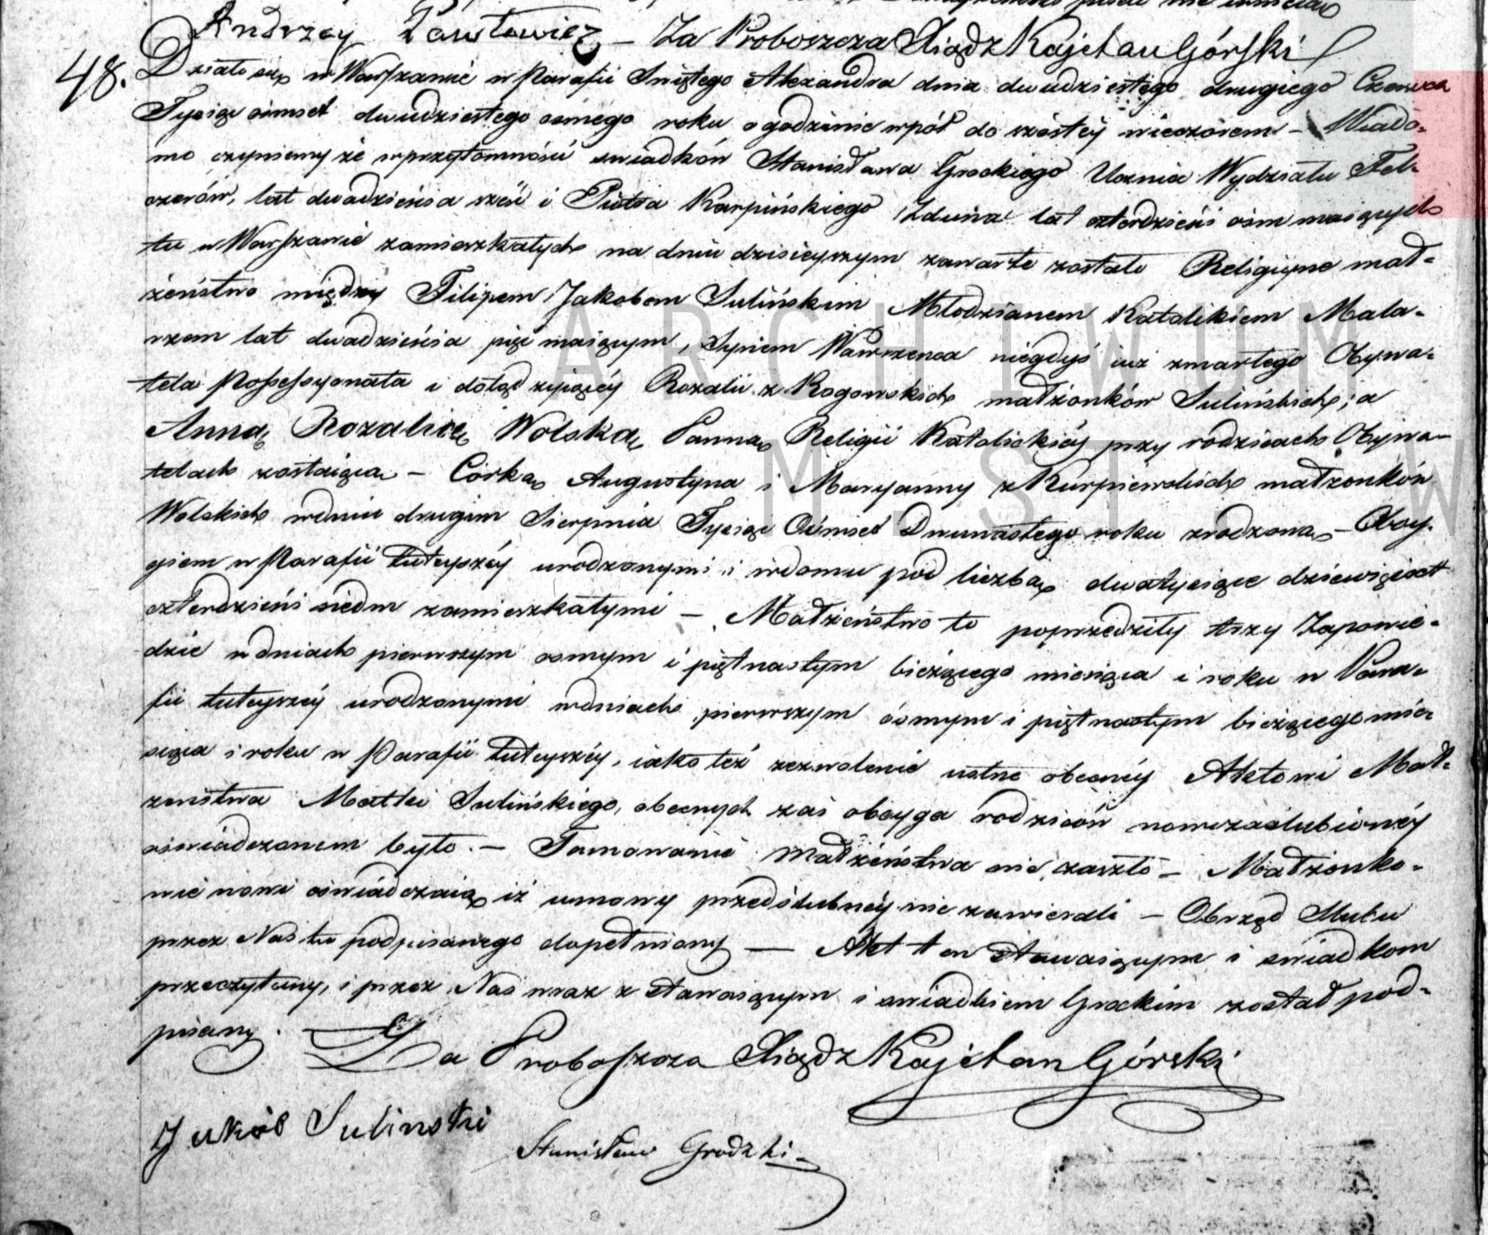 Andrzey Pawłowicz — Za Proboszcza Xiądz Kajetan Górski
48. Działo się w Warszawie w Parafii Świętego Alexandra dnia dwudziestego drugiego Czerwca
Tysiąc ośmset dwudziestego ósmego roku o godzinie wpół do szóstéy wieczorem — Wiado-
mo czyniemy że w przytomności świadków Stanisława Grockiego Ucznia Wydziału Fel-
czerów, lat dwadzieścia sześć i Piotra Karpińskiego Zduna lat czterdzieści ośm maiących
tu w Warszawie zamieszkałych na dniu dzisieyszym zawarte zostało Religiyne mał-
żeństwo między Filipem Jakobem Sulińskim Młodzianem Katolikiem Mala-
rzem lat dwadzieścia pięć maiącym, Synem Wawrzeńca niegdyś iuż zmarłego Obywa-
tela Possessyonata i dotąd żyiącéy Rozalii z Rogowskich małżonków Sulinskich; a
Anną Rozalią Wolską Panną Religii Katolickiéy przy rodzicach Obywa-
telach zostaiąca — Córką Augustyna i Maryanny z Kurpiewskich małżonków
Wolskich w dniu drugim Sierpnia Tysiąc Ośmset Dwunastego roku zrodzoną — Oboy-
giem w Parafii tuteyszéy urodzonymi i w domu pod liczbą dwa tysiące dziewięćset
czterdzieści siedm zamieszkałymi — Małżeństwo to poprzedziły trzy Zapowie-
dzie w dniach pierwszym osmym i piętnastym bieżącego miesiąca i roku w Para-
fii tuteyszéy urodzonymi w dniach pierwszym ósmym i piętnastym bieżącego mie-
siąca i roku w Parafii tuteyszéy, iako też zezwolenie ustne obecnéy Aktowi Mał-
żeństwa Matki Sulińskiego, obecnych zaś oboyga rodziców nowozaślubionéy
oświadczonem było. — Tamowanie Małżeństwa nie zaszło — Małżonko-
wie nowi oświadczaią iż umowy przedślubnéy nie zawierali — Obrząd Ślubu
przez Nas tu podpisanego dopełniony — Akt ten stawaiącym i świadkom
przeczytany, i przez Nas wraz z stawaiącym i świadkiem Grockim został pod-
pisany. — Za Proboszcza Xiądz Kajetan Górski
Jakób Sulinski Stanisław Grodzki
ARCHIWUM
M. ST. W